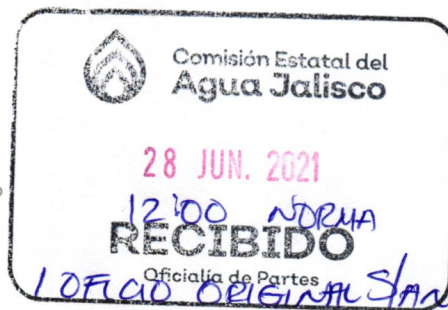 Comisión Estatal del
Agua Jalisco
28 JUN. 2021
12:00 NORMA
RECIBIDO
Oficialía de Partes
1 OFICIO ORIGINAL S/AN